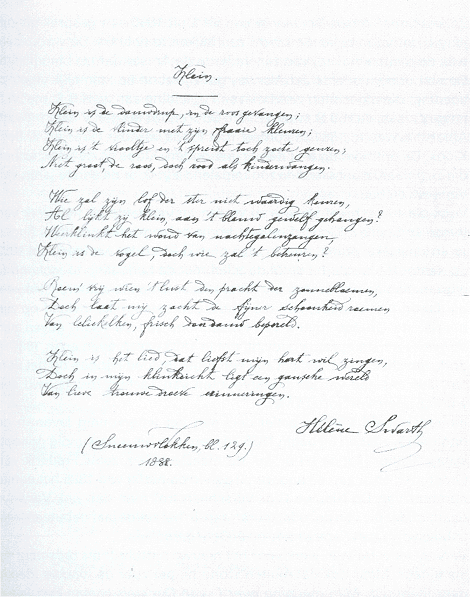 Klein.
Klein is de dauwdrup, in de roos gevangen;
Klein is de vlinder met zijn fraaie kleuren;
Klein is 't viooltje en 't spreidt toch zoete geuren;
Niet groot, de roos, doch rood als kinderwangen.
Wie zal zijn lof der ster niet waardig keuren,
Al lijkt zij klein, aan 't blauw gewelf gehangen?
Weerklinkt het woud van nachtegalenzangen,
Klein is de vogel, doch wie zal 't betreuren?
Roem' vrij wien 't lust den pracht der zonnebloemen,
Doch laat mij zacht de fijner schoonheid roemen
Van leliekelken, frisch van dauw bepereld.
Klein is het lied, dat liefst mijn hart wil zingen,
Doch in mijn klinkdicht ligt een gansche wereld
Van lieve trouwe droeve erinneringen.
Hélène Swarth
(Sneeuwvlokken, bl. 129.)
1888.